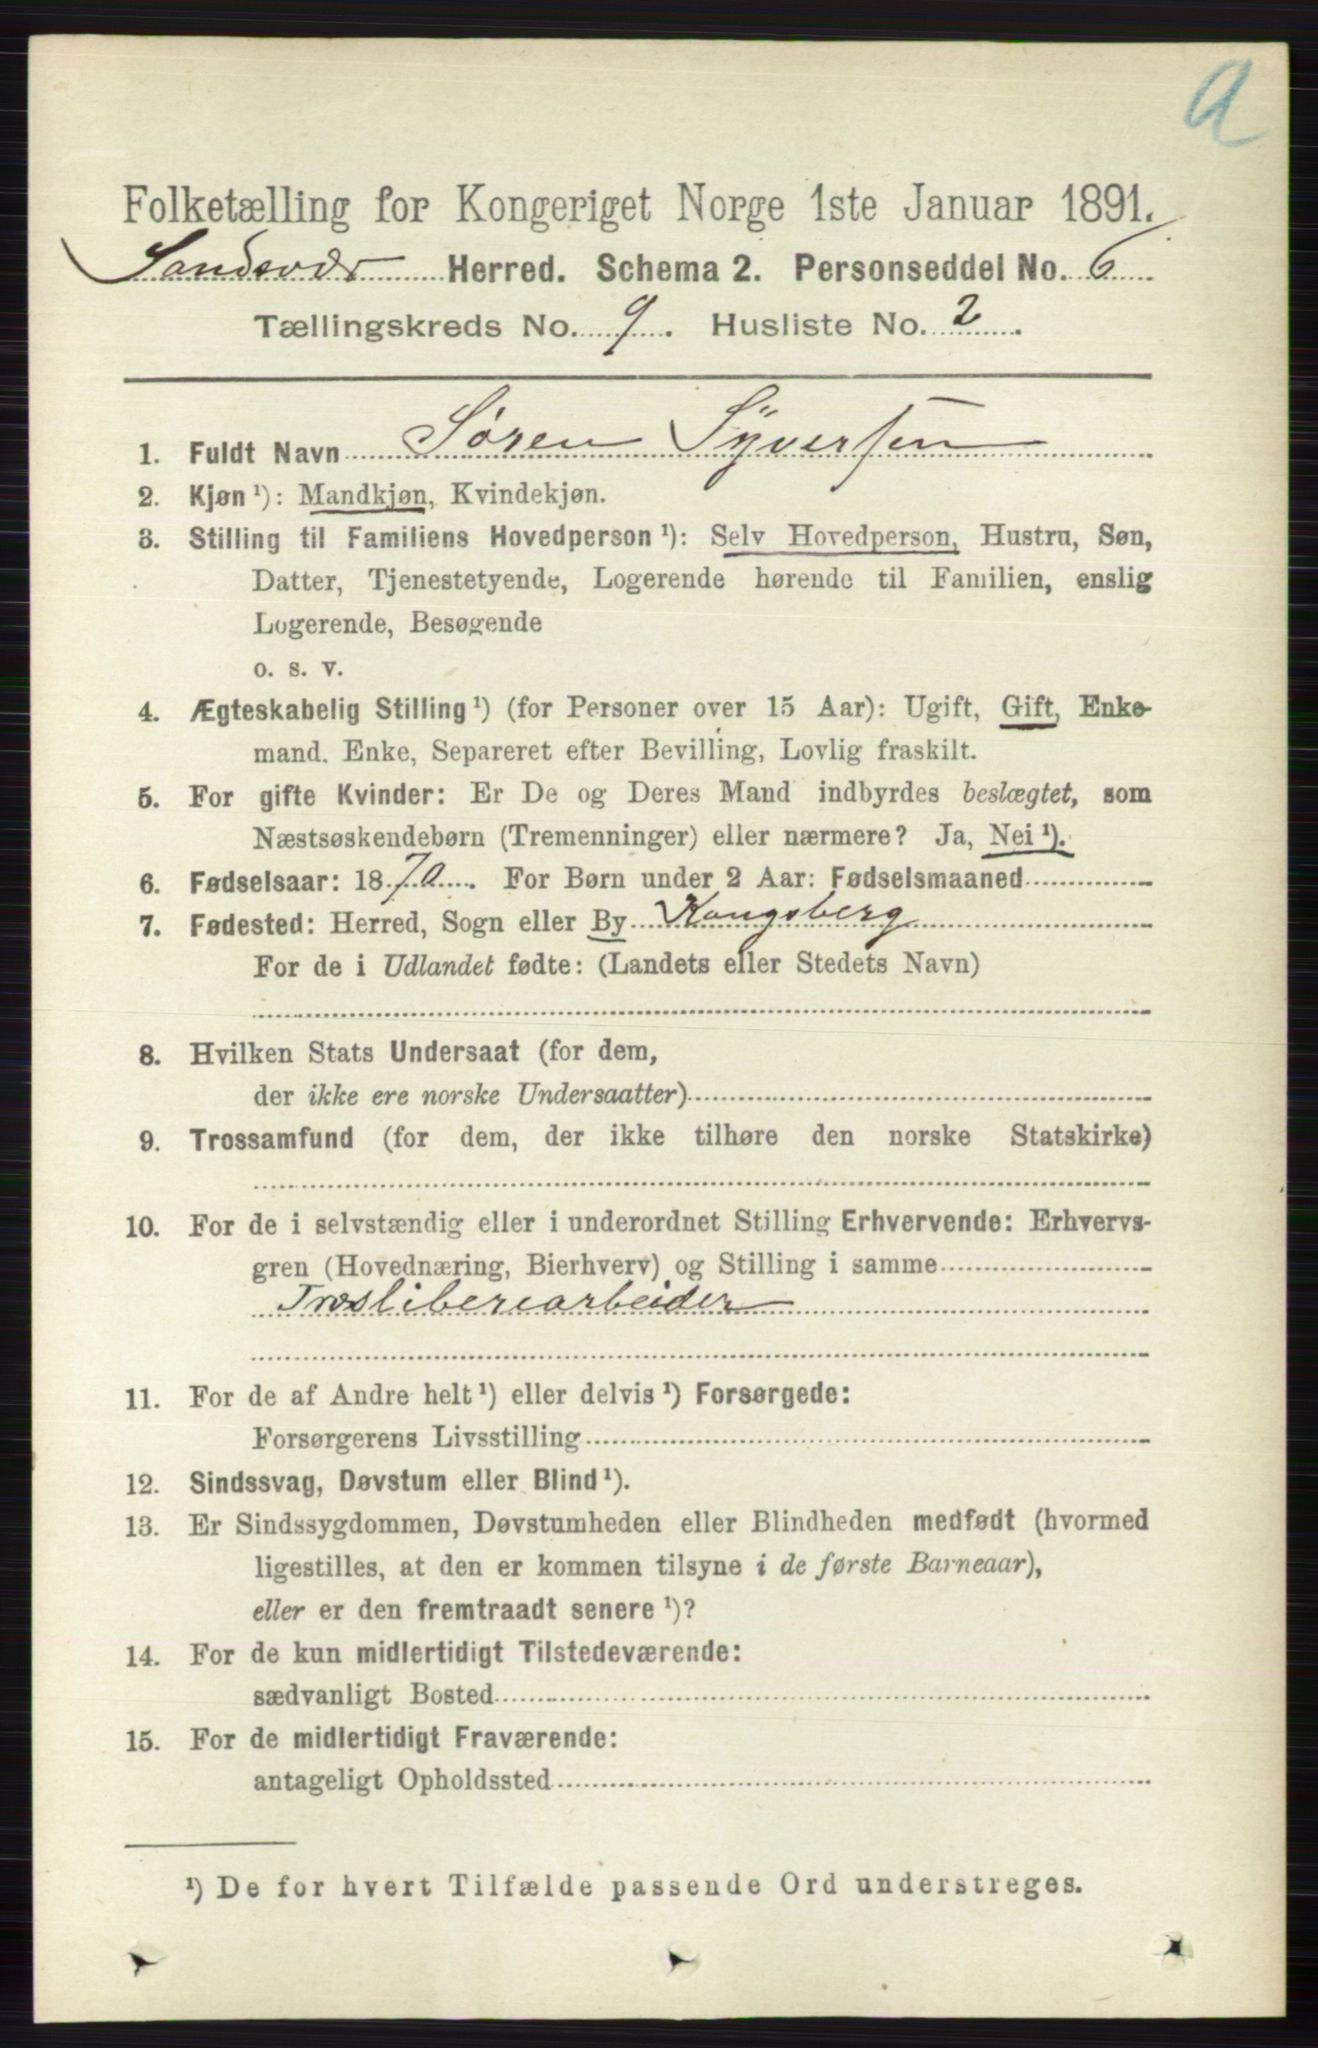 a
Folketælling for Kongeriget Norge 1ste Januar 1891.
Sandsvær Herred. Schema 2. Personseddel No. 6
Tællingskreds No. 9. Husliste No. 2.
1. Fuldt Navn Søren Syversen
2. Kjøn ¹): Mandkjøn, Kvindekjøn.
3. Stilling til Familiens Hovedperson ¹): Selv Hovedperson, Hustru, Søn,
Datter, Tjenestetyende, Logerende hørende til Familien, enslig
Logerende, Besøgende
o. s. v.
4. Ægteskabelig Stilling ¹) (for Personer over 15 Aar): Ugift, Gift, Enke-
mand. Enke, Separeret efter Bevilling, Lovlig fraskilt.
5. For gifte Kvinder: Er De og Deres Mand indbyrdes beslægtet, som
Næstsøskendebørn (Tremenninger) eller nærmere? Ja, Nei ¹).
6. Fødselsaar: 1870. For Børn under 2 Aar: Fødselsmaaned
7. Fødested: Herred, Sogn eller By Kongsberg
For de i Udlandet fødte: (Landets eller Stedets Navn)
8. Hvilken Stats Undersaat (for dem,
der ikke ere norske Undersaatter)
9. Trossamfund (for dem, der ikke tilhøre den norske Statskirke)
10. For de i selvstændig eller i underordnet Stilling Erhvervende: Erhvervs-
gren (Hovednæring, Bierhverv) og Stilling i samme
Træsliberiarbeider
11. For de af Andre helt ¹) eller delvis ¹) Forsørgede:
Forsørgerens Livsstilling
12. Sindssvag, Døvstum eller Blind ¹).
13. Er Sindssygdommen, Døvstumheden eller Blindheden medfødt (hvormed
ligestilles, at den er kommen tilsyne i de første Barneaar),
eller er den fremtraadt senere ¹)?
14. For de kun midlertidigt Tilstedeværende:
sædvanligt Bosted
15. For de midlertidigt Fraværende:
antageligt Opholdssted
¹) De for hvert Tilfælde passende Ord understreges.